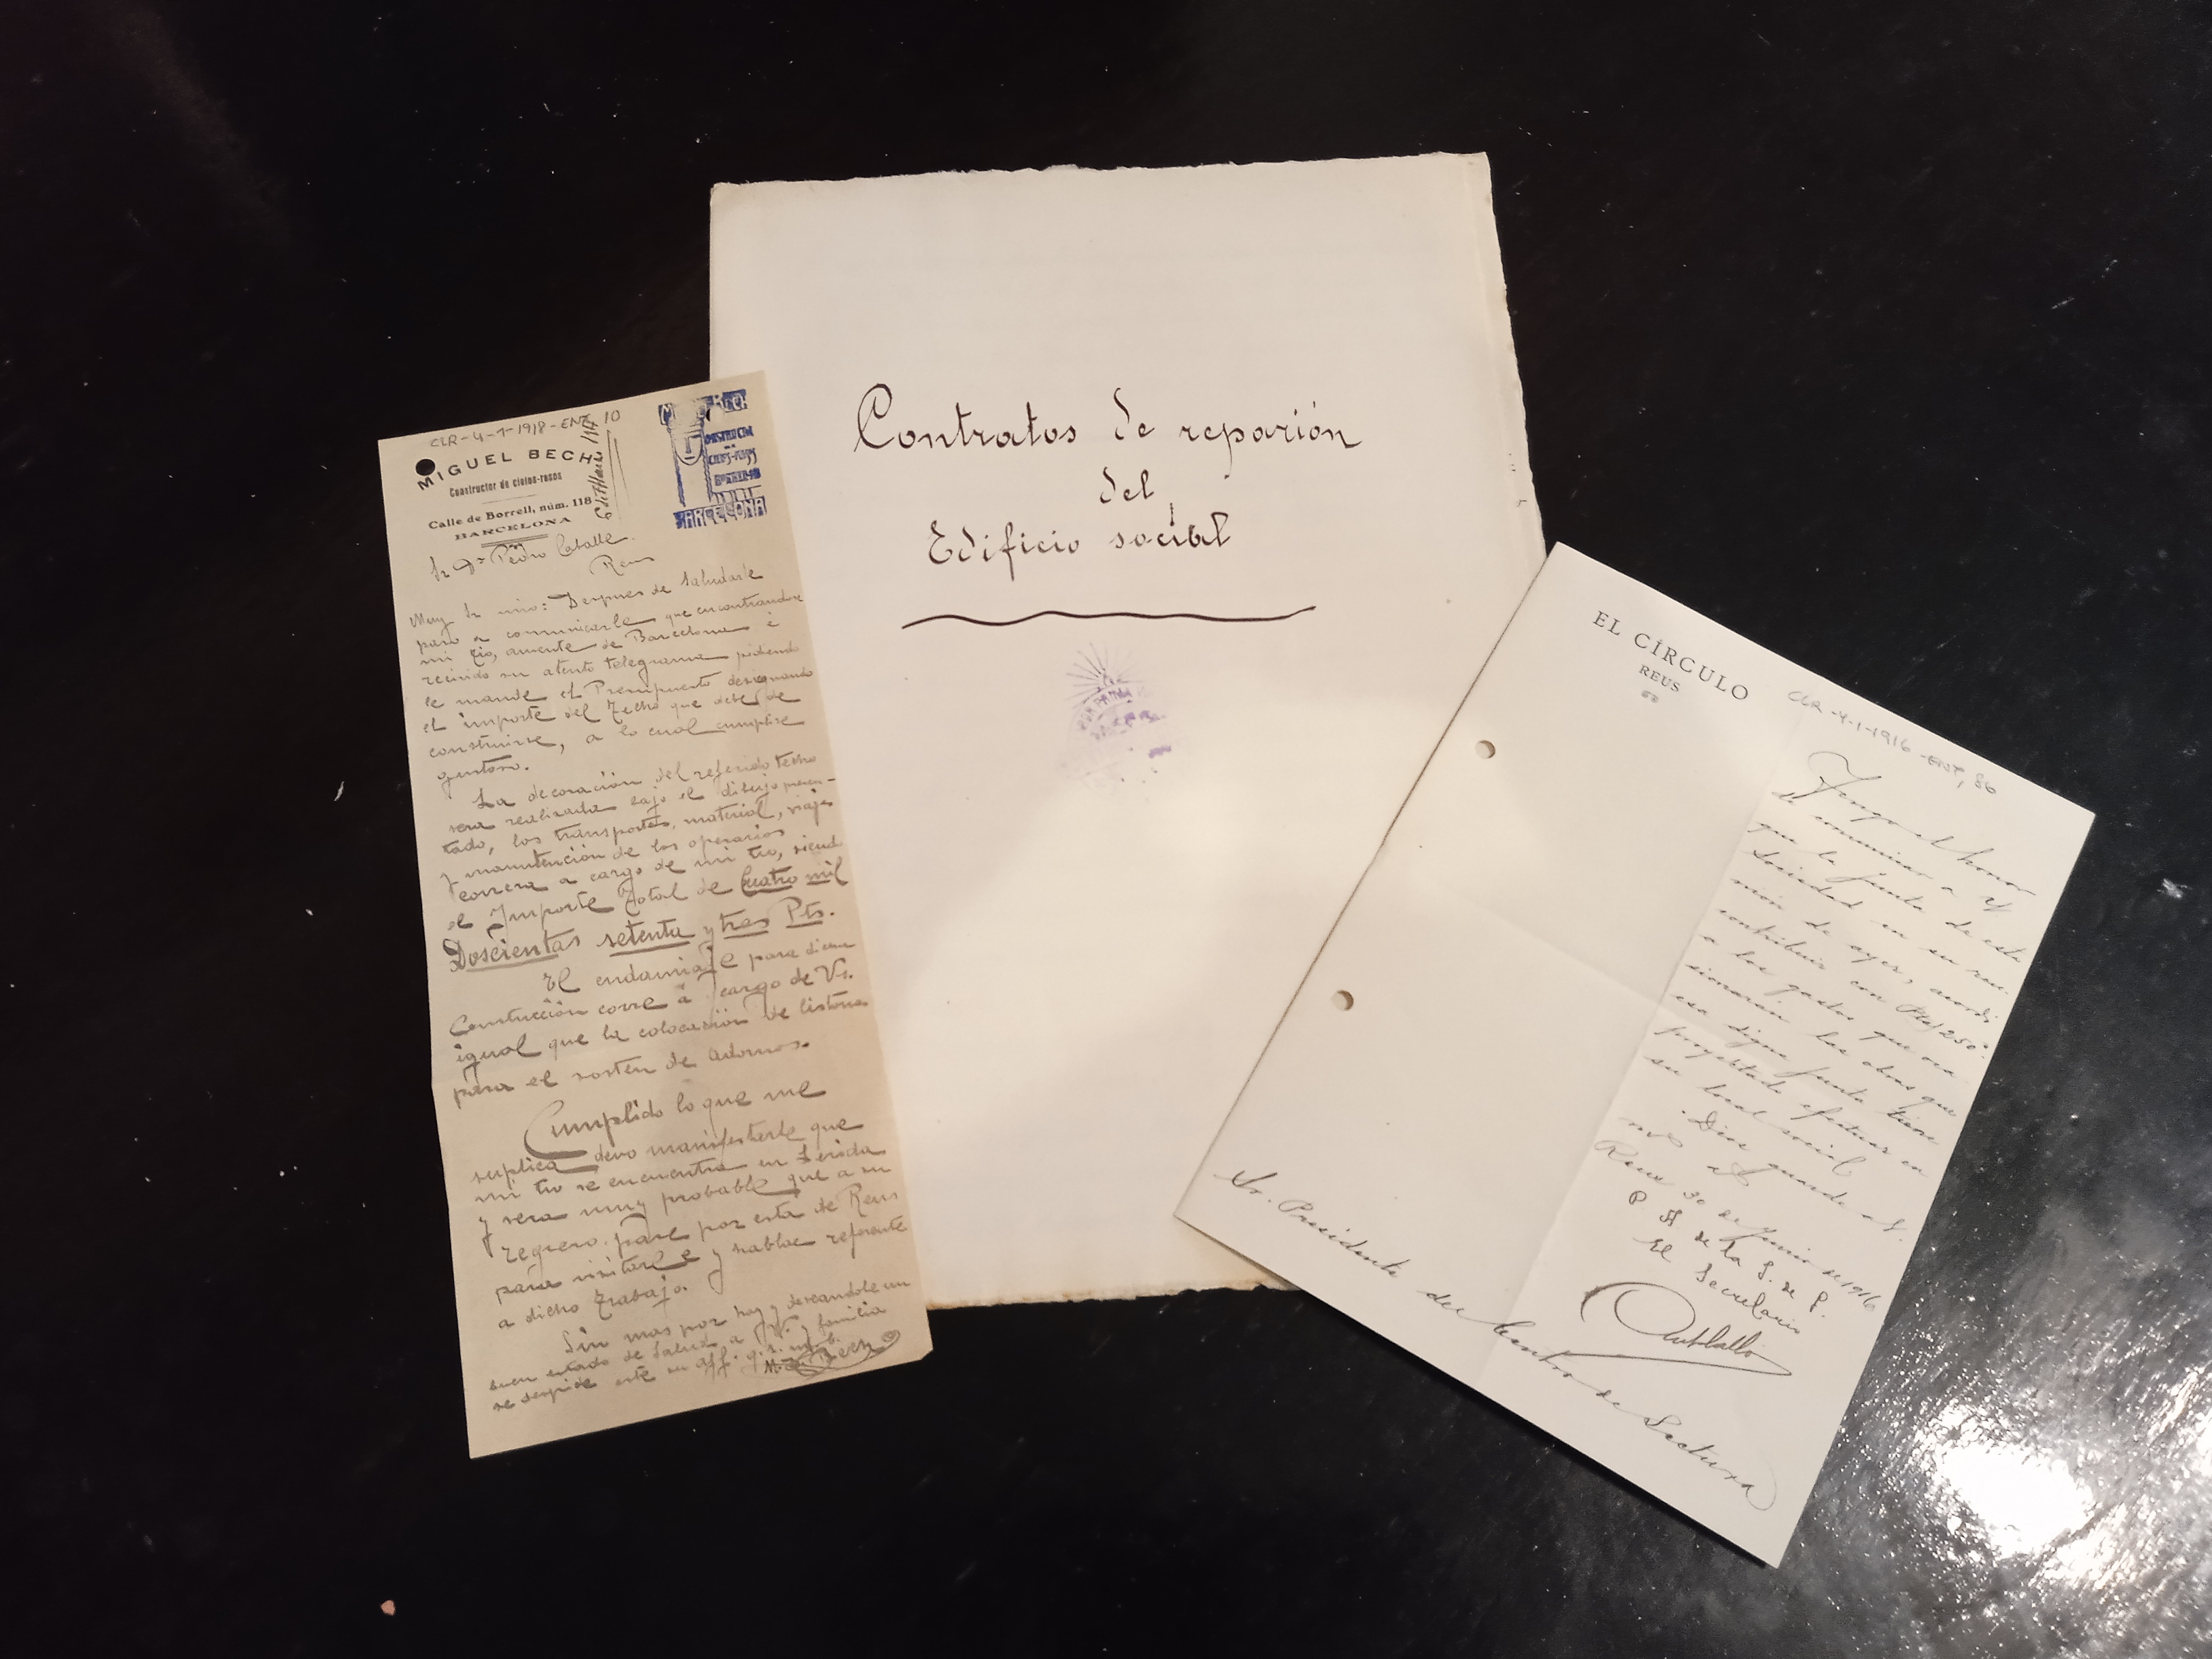 CLR-4-1-1918-ENT, 10
MIGUEL BECH
Constructor de cielos-rasos
Calle de Borrell, núm. 118
BARCELONA
BARCELONA
Sr Dn Pedro Caballe
Reus
Muy Sr mio: Despues de saludarle
paso a comunicarle que encontrandose
mi tio, ausente de Barcelona é
recivido su atento telegrama pidiendo
le mande el Presupuesto designando
el importe del Techo que debe de
construirse, a lo cual cumplise
gustoso.
La decoración del referido techo
sera realizada bajo el dibujo presen-
tado, los transportes, material, viajes
y manutención de los operarios
correra a cargo de mi tio, siendo
el Importe Total de Cuatro mil
Doscientas setenta y tres Pts.
El andamiaje para dicha
Construcción corre á cargo de Vs.
igual que la colocación de listones
para el sosten de adornos.
Cumplido lo que me
suplica devo manifestarle que
mi tio se encuentra en Lerida
y sera muy probable que a su
regreso pase por esta de Reus
para visitarle y hablar referente
a dicho trabajo.
Sin mas por hoy y deseandole un
buen estado de salud a V. y familia
se despide este su aff. q.s.m.b.
Bech
Contratos de reparión
del
Edificio social
EL CÍRCULO
REUS
CLR-4-1-1916-ENT, 86
Tengo el honor
de comunicar a V.
que la Junta de esta
Sociedad en su reu-
nión de ayer, acordó
contribuir con Ptas 250
a los gastos que oca-
sionarán las obras que
esa digna Junta tiene
proyectado efectuar en
su local social.
Dios guarde a V.
Reus 30 de Junio de 1916
P. A. de la J. de G.
El Secretario
Sr. Presidente del Centro de Lectura